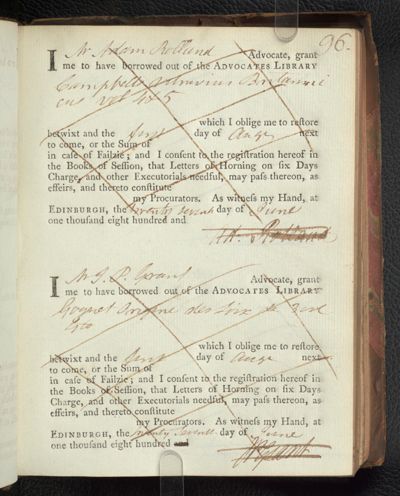 96.
I Mr Adam Rolland Advocate, grant
me to have borrowed out of the ADVOCATES LIBRARY
Campbells Vitruvius Britanni
cus vol 4 & 5
which I oblige me to reſtore
betwixt and the first day of Augt next
to come, or the Sum of
in caſe of Failzie; and I conſent to the regiſtration hereof in
the Books of Seſſion, that Letters of Horning on ſix Days
Charge, and other Executorials needful, may paſs thereon, as
effeirs, and thereto conſtitute
my Procurators. As witneſs my Hand, at
EDINBURGH, the twenty seventh day of June
one thouſand eight hundred and
Ad. Rolland
I Mr J. P. Grant Advocate, grant
me to have borrowed out of the ADVOCATES LIBRARY
Goguet Origine des Loix &c
which I oblige me to reſtore
betwixt and the first day of Augt next
to come, or the Sum of
in caſe of Failzie; and I conſent to the regiſtration hereof in
the Books of Seſſion, that Letters of Horning on ſix Days
Charge, and other Executorials needful, may paſs thereon, as
effeirs, and thereto conſtitute
my Procurators. As witneſs my Hand, at
EDINBURGH, the twenty seventh day of June
one thouſand eight hundred and